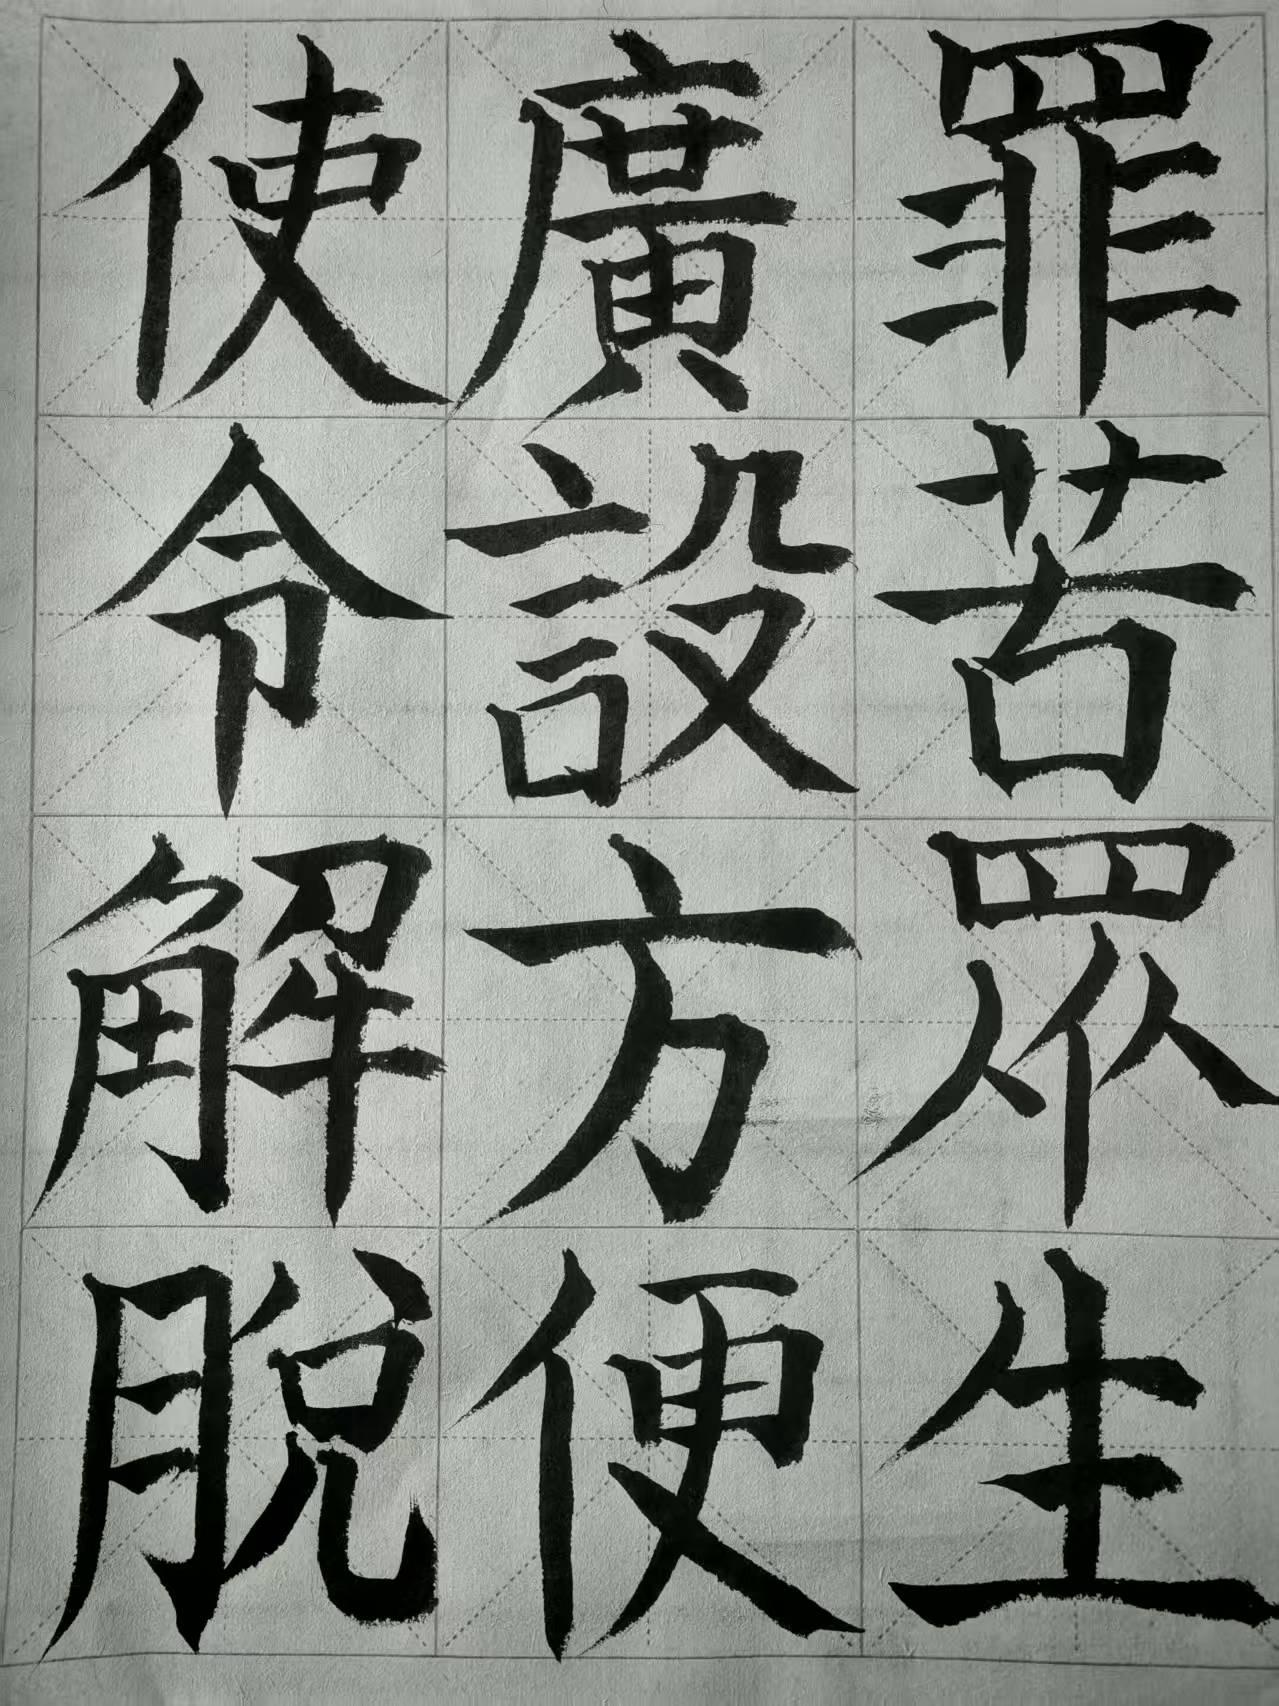 罪苦眾生
廣設方便
使令解脫